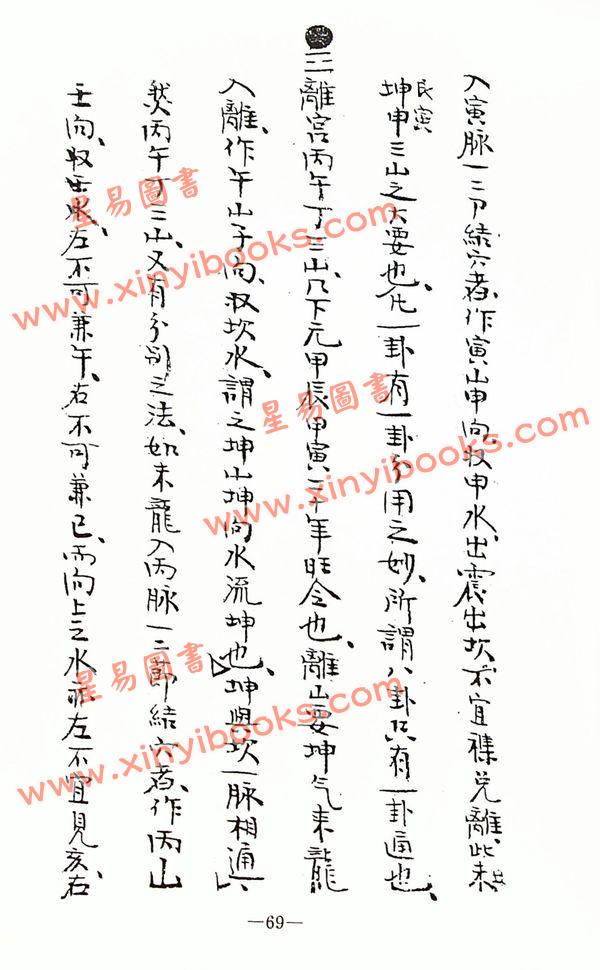 入寅脉一二卩結穴者、作寅山申向、収申水、出震出坎、不宜襍兌離、此未丑
艮寅
坤申三山之大要也、凡一卦有一卦分用之妙、所謂八卦只有一卦通也、
三離宮丙午丁三山、凡下元甲辰甲寅二十年旺令也、離山要坤气来龍
入離、作午山子向、収坎水、謂之坤山坤向水流坤也、坤與坎一脉相通、
然丙午丁三山、又有分別之法、如来龍入丙脉一二節結穴者、作丙山
壬向、収壬水、左不可兼午、右不可兼巳、而向上之水亦左不宜見亥、右
—69—
星易圖書
www.xinyibooks.com
星易圖書
www.xinyibooks.com
星易圖書
www.xinyibooks.com